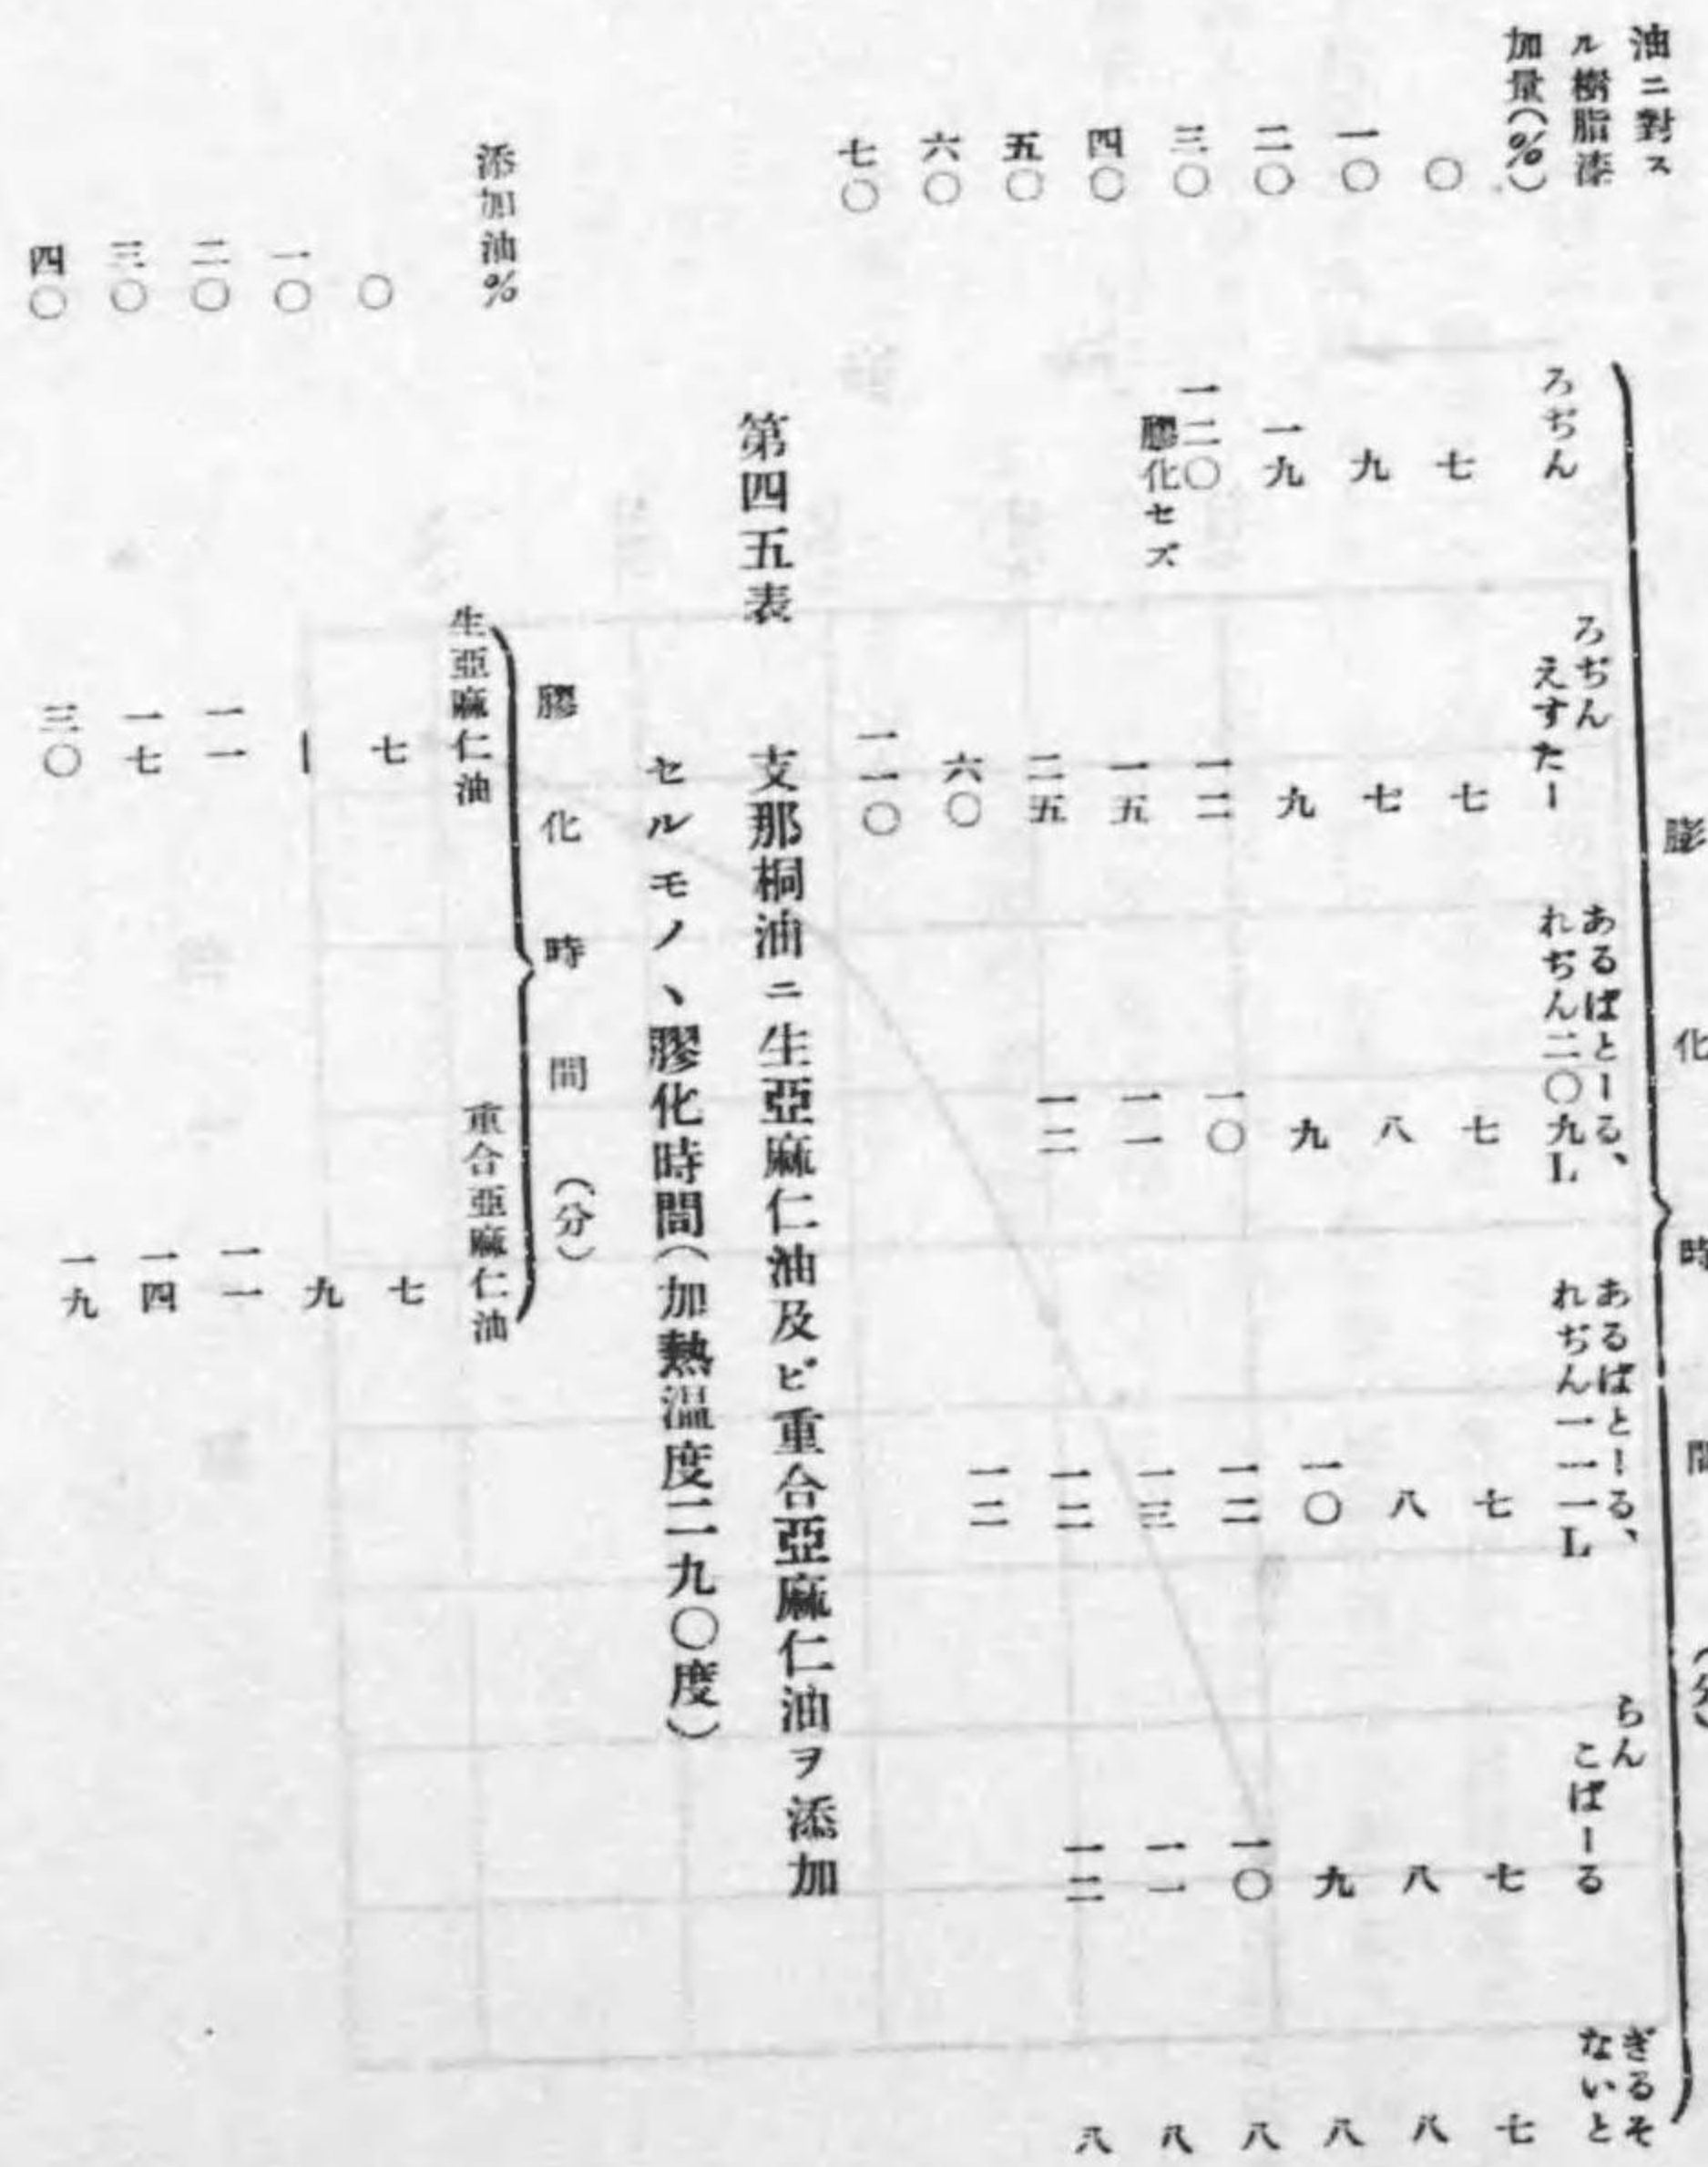 膨化時間(分)
油ニ對ス
ル樹脂漆
加量(%)
ろぢん
ろぢん
えすたー
あるばとーる、
れぢん二〇九L
あるばとーる、
れぢん一一一L
らん
こばーる
ぎるそ
ないと
〇 七 七 七 七 七 七
一〇 九 七 八 八 八 八
二〇 一九 九 九 一〇 九 八
三〇 一二〇 一二 一〇 一二 一〇 八
四〇 膠化セズ 一五 一一 一三 一一 八
五〇 二五 一二 一二 一二 八
六〇 六〇 一二
七〇 一一〇
第四五表 支那桐油ニ生亞麻仁油及ビ重合亞麻仁油ヲ添加
セルモノ、膠化時間(加熱温度二九〇度)
膠化時間(分)
添加油% 生亞麻仁油 重合亞麻仁油
〇 七 七
一〇 ー 九
二〇 一一 一一
三〇 一七 一四
四〇 三〇 一九